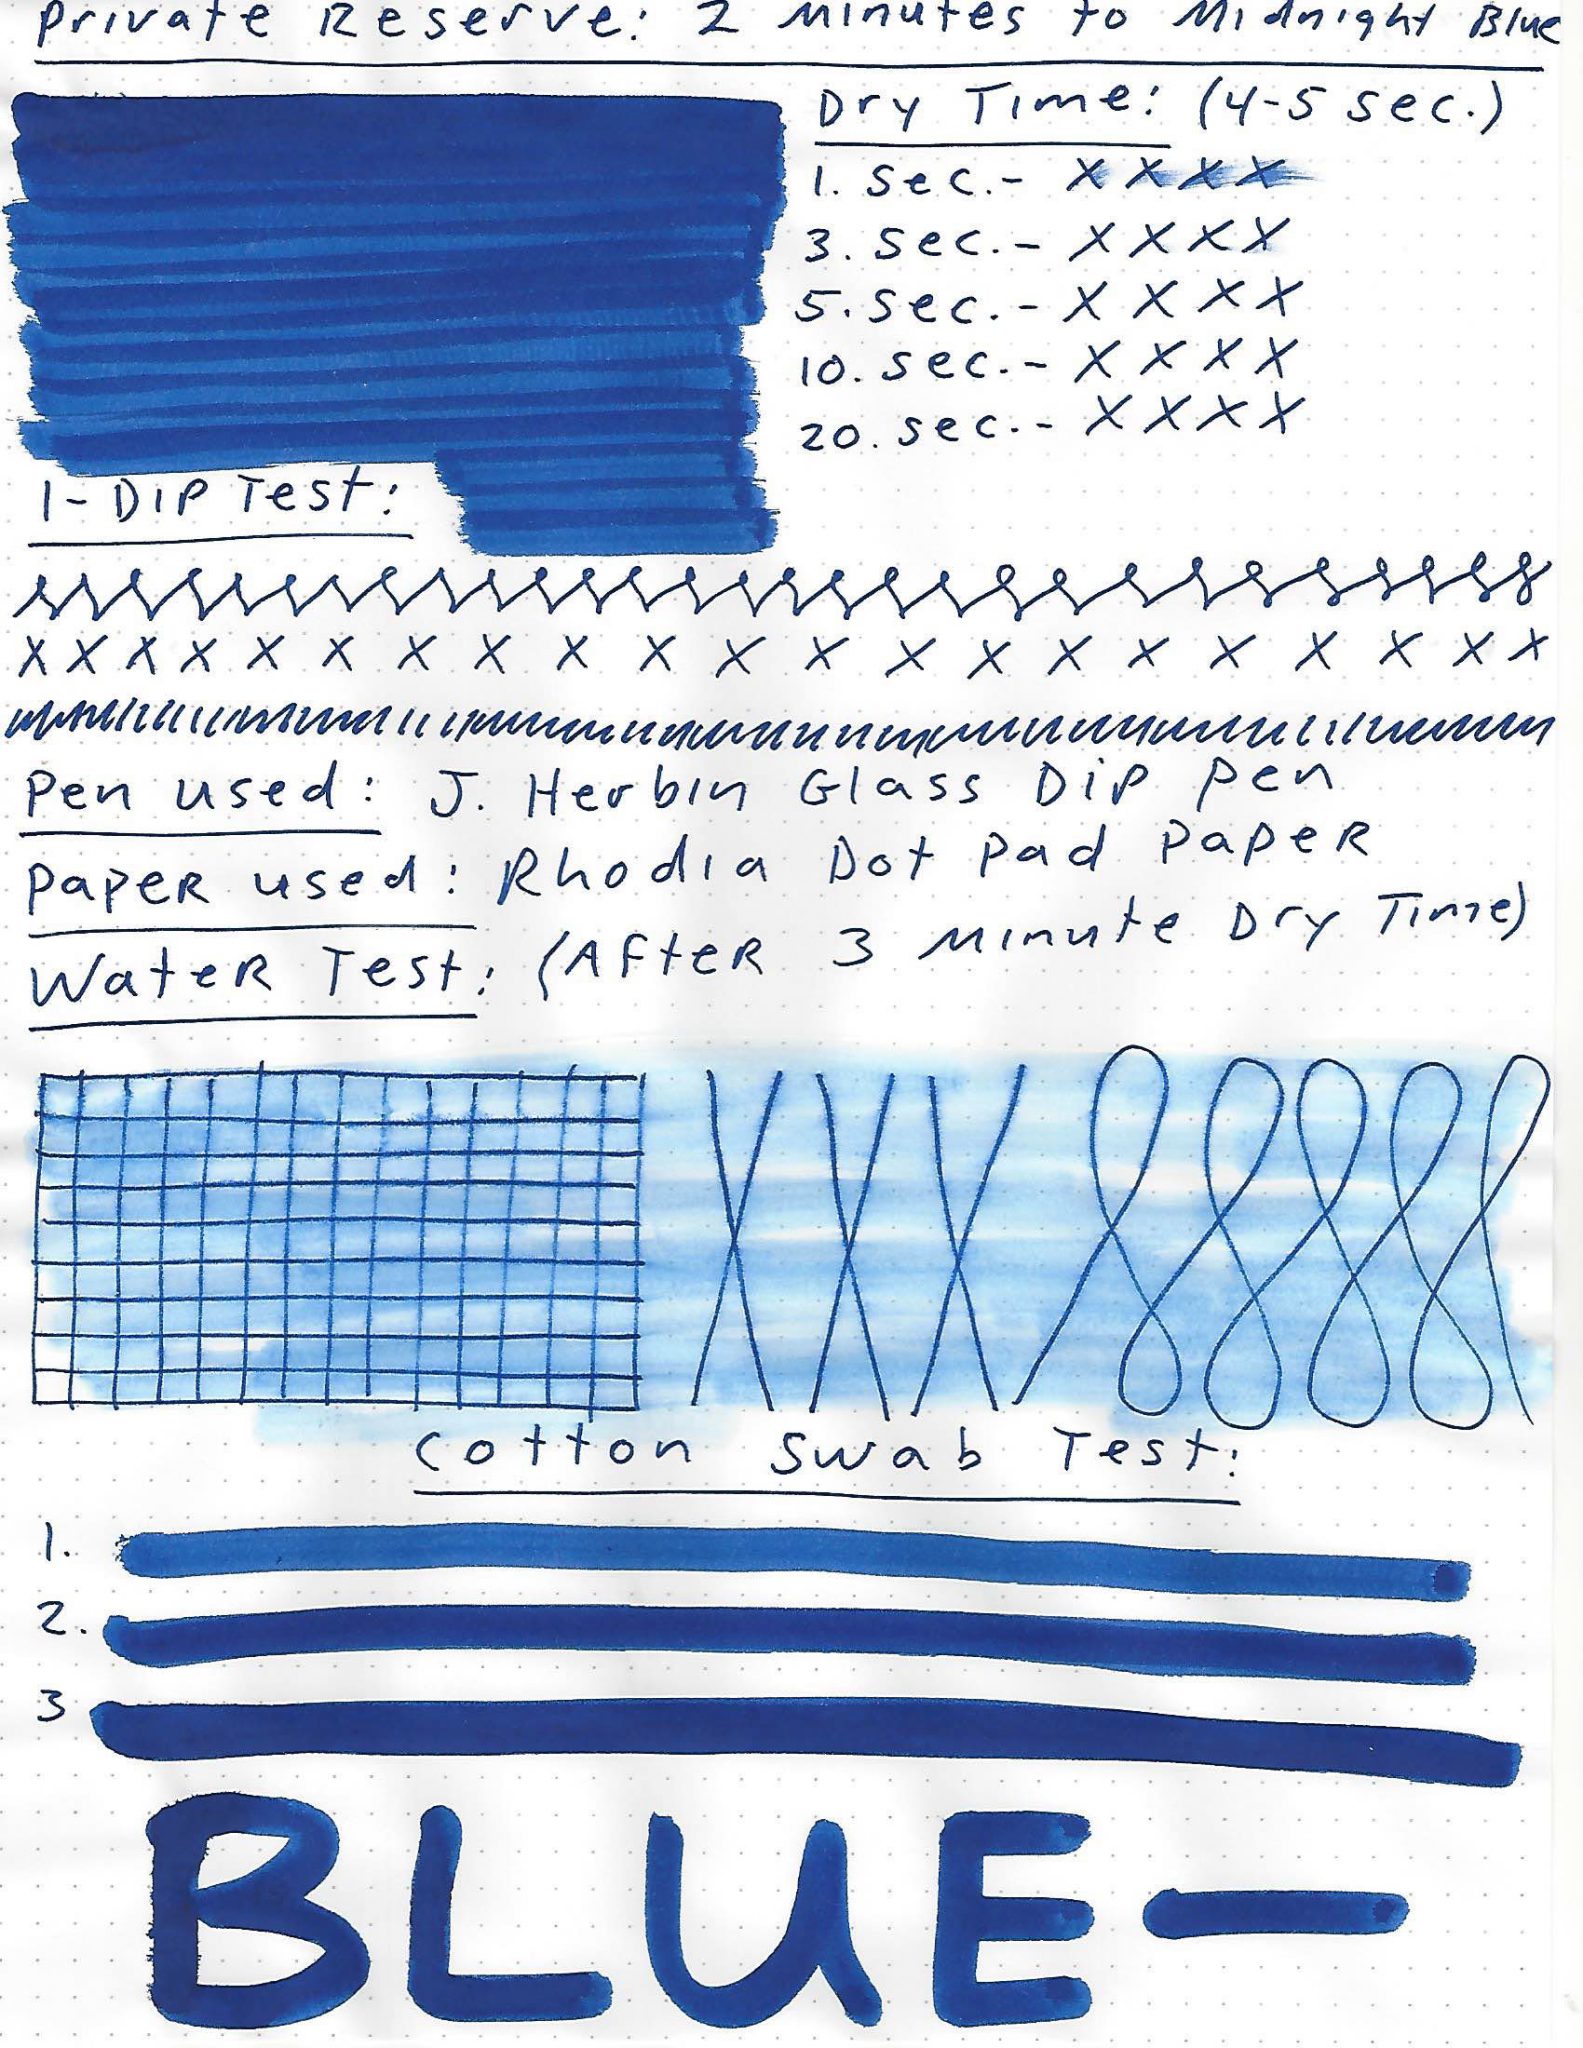 Private Reserve: 2 Minutes to Midnight Blue
Dry Time: (4-5 sec.)
1. sec.- X X X X
3. sec.- X X X X
5. sec.- X X X X
10. sec.- X X X X
20. sec.- X X X X
1-Dip Test:
X X X X X X X X X X X X X X X X X X X X X
Pen used: J. Herbin Glass Dip Pen
Paper used: Rhodia Dot Pad Paper
Water Test: (After 3 Minute Dry Time)
Cotton Swab Test:
1.
2.
3
BLUE-